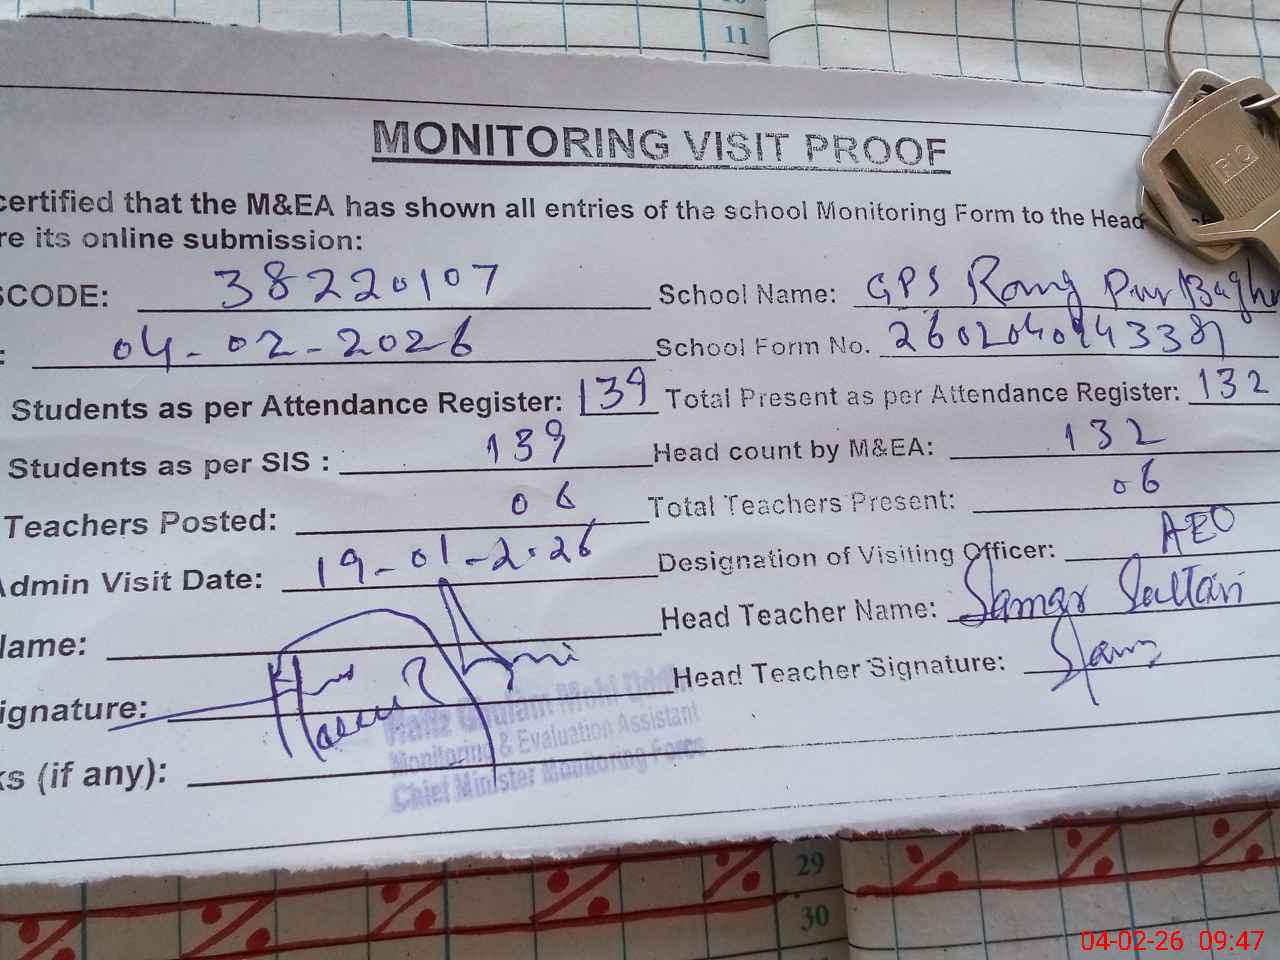 11
MONITORING VISIT PROOF
certified that the M&EA has shown all entries of the school Monitoring Form to the Head
re its online submission:
SCODE: 38220107 School Name: GPS Rang Pur Bagh
: 04-02-2026 School Form No.
Students as per Attendance Register: 139 Total Present as per Attendance Register: 132
Students as per SIS : 139 Head count by M&EA: 132
Teachers Posted: 06 Total Teachers Present: 06
Admin Visit Date: 19-01-2026 Designation of Visiting Officer: AEO
Name: Head Teacher Name: Samar Sultan
ignature: Head Teacher Signature:
Hafiz Ghulam Mohi Uddin
Monitoring & Evaluation Assistant
Chief Minister Monitoring Force
ks (if any):
29
30
04-02-26 09:47